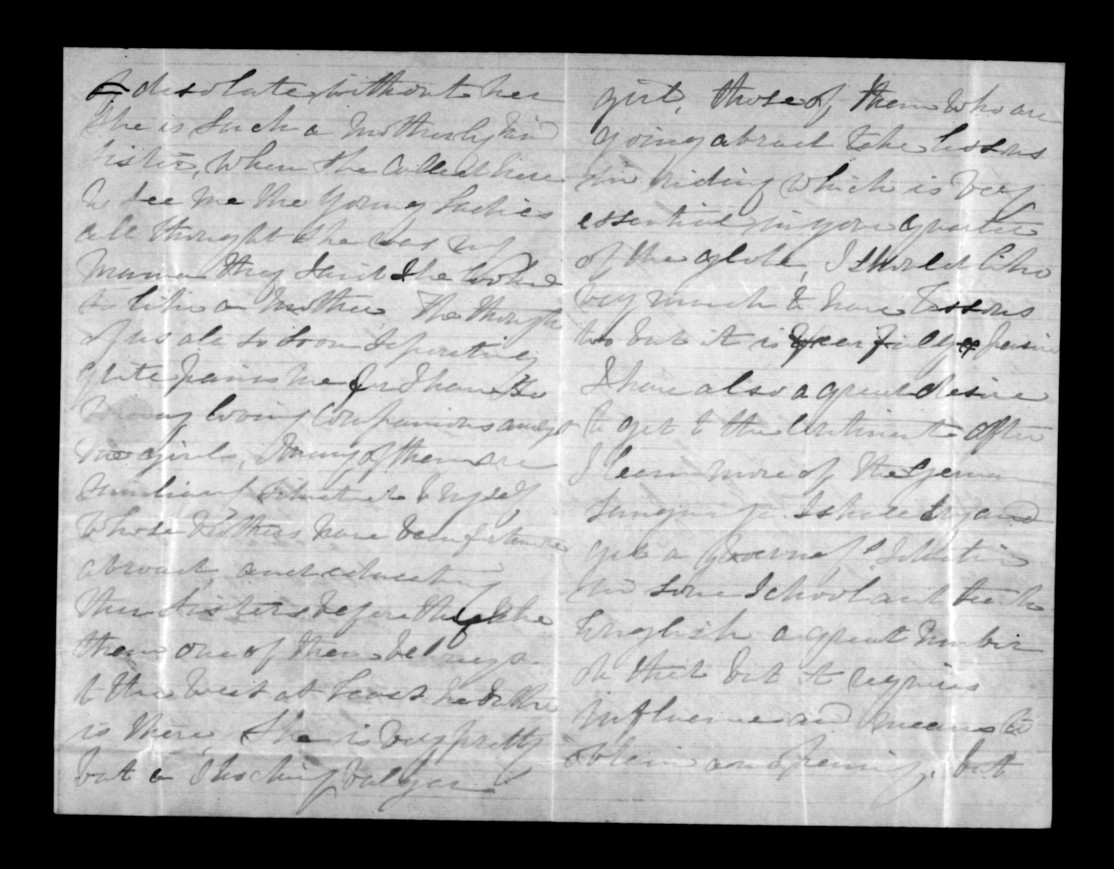 desolate without her
She is such a motherly kind
sister, when she called here
to see me the young ladies
all thought she was my
Mama they said she looked
so like a mother. The thought
of us all so soon separating
quite pains me for I have so
many loving companions amongst
the girls, Many of them are
similarly situated to myself
whose Fathers have been
abroad, and educating
their sisters before they
them one of them belongs
to the West at least her
is there. She is very pretty
but a shocking vulgar
girl, those of them who are
going abroad take lessons
in riding which is very
essential in your quarter
of the globe, I should like
very much to have lessons
too but it is expensive
I have also a great desire
to get to the Continent after
I learn more of the German
language I should try and
get a Governess Situation
in some School and teach
English a great number
do that but it requires
influence and means to
obtain an opening, but